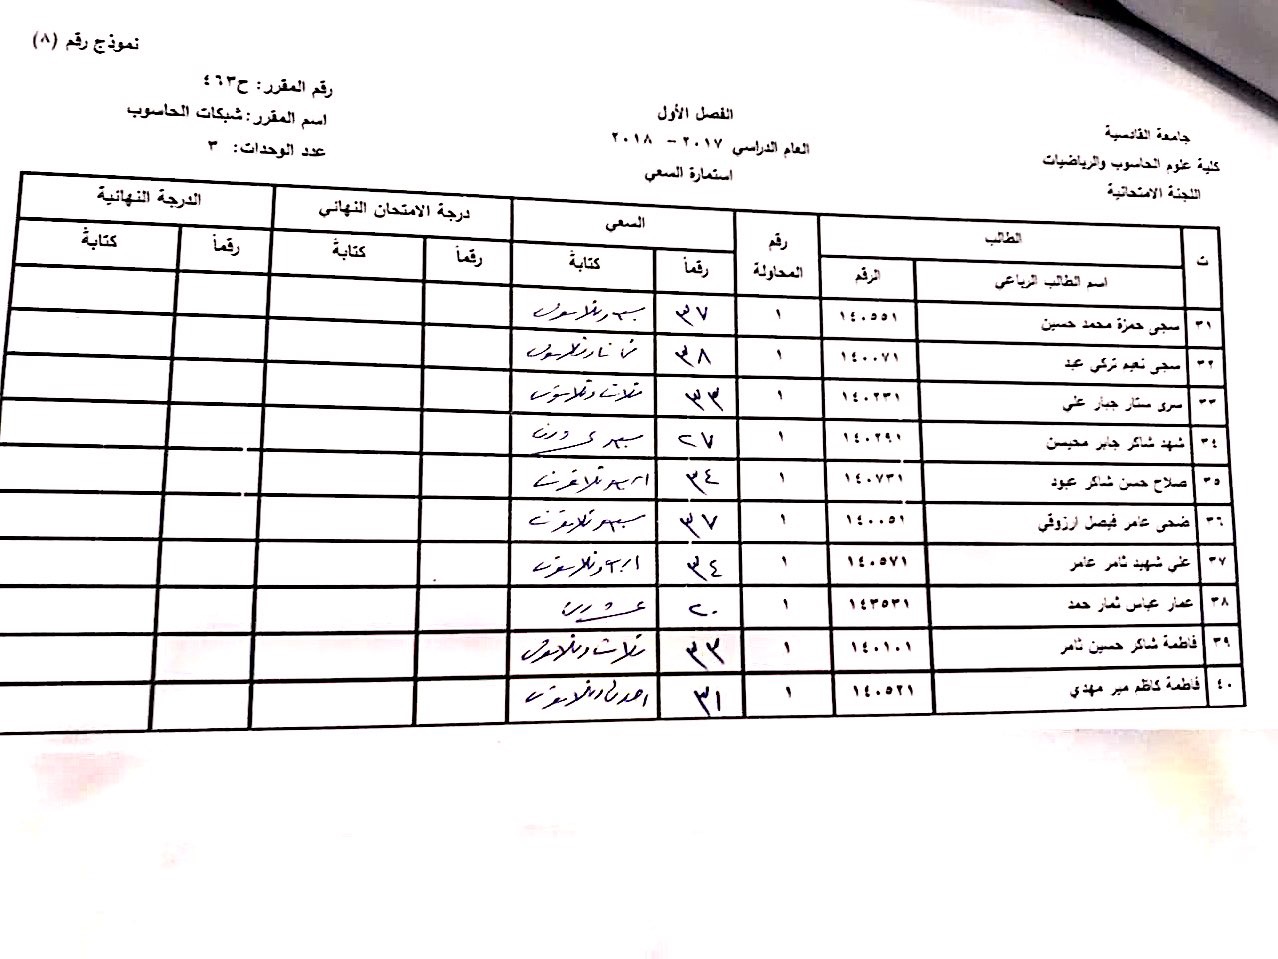 نموذج رقم (٨)
رقم المقرر: ح٤٦٣
اسم المقرر: شبكات الحاسوب
عدد الوحدات: ٣
الفصل الأول
العام الدراسي ٢٠١٧ - ٢٠١٨
استمارة السعي
جامعة القادسية
كلية علوم الحاسوب والرياضيات
اللجنة الامتحانية
ت الطالب رقم المحاولة السعي درجة الامتحان النهائي الدرجة النهائية
اسم الطالب الرباعي الرقم رقماً كتابةً رقماً كتابةً رقماً كتابةً
٣١ سجى حمزة محمد حسين ١٤٠٥٥١ ١ ٣٧ سبع وثلاثون
٣٢ سجى نعيم تركي عبد ١٤٠٠٧١ ١ ٣٨ ثمان وثلاثون
٣٣ سرى ستار جبار علي ١٤٠٢٣١ ١ ٣٣ ثلاث وثلاثون
٣٤ شهد شاكر جابر محيسن ١٤٠٢٩١ ١ ٢٧ سبع وعشرون
٣٥ صلاح حسن شاكر عبود ١٤٠٧٣١ ١ ٣٤ اربع وثلاثون
٣٦ ضحى عامر فيصل ارزوقي ١٤٠٠٥١ ١ ٣٧ سبع وثلاثون
٣٧ علي شهيد ثامر عامر ١٤٠٥٧١ ١ ٣٤ اربع وثلاثون
٣٨ عمار عباس ثمار حمد ١٤٣٥٣١ ١ ٢٠ عشرون
٣٩ فاطمة شاكر حسين ثامر ١٤٠١٠١ ١ ٣٣ ثلاث وثلاثون
٤٠ فاطمة كاظم مير مهدي ١٤٠٥٢١ ١ ٣١ احدى وثلاثون